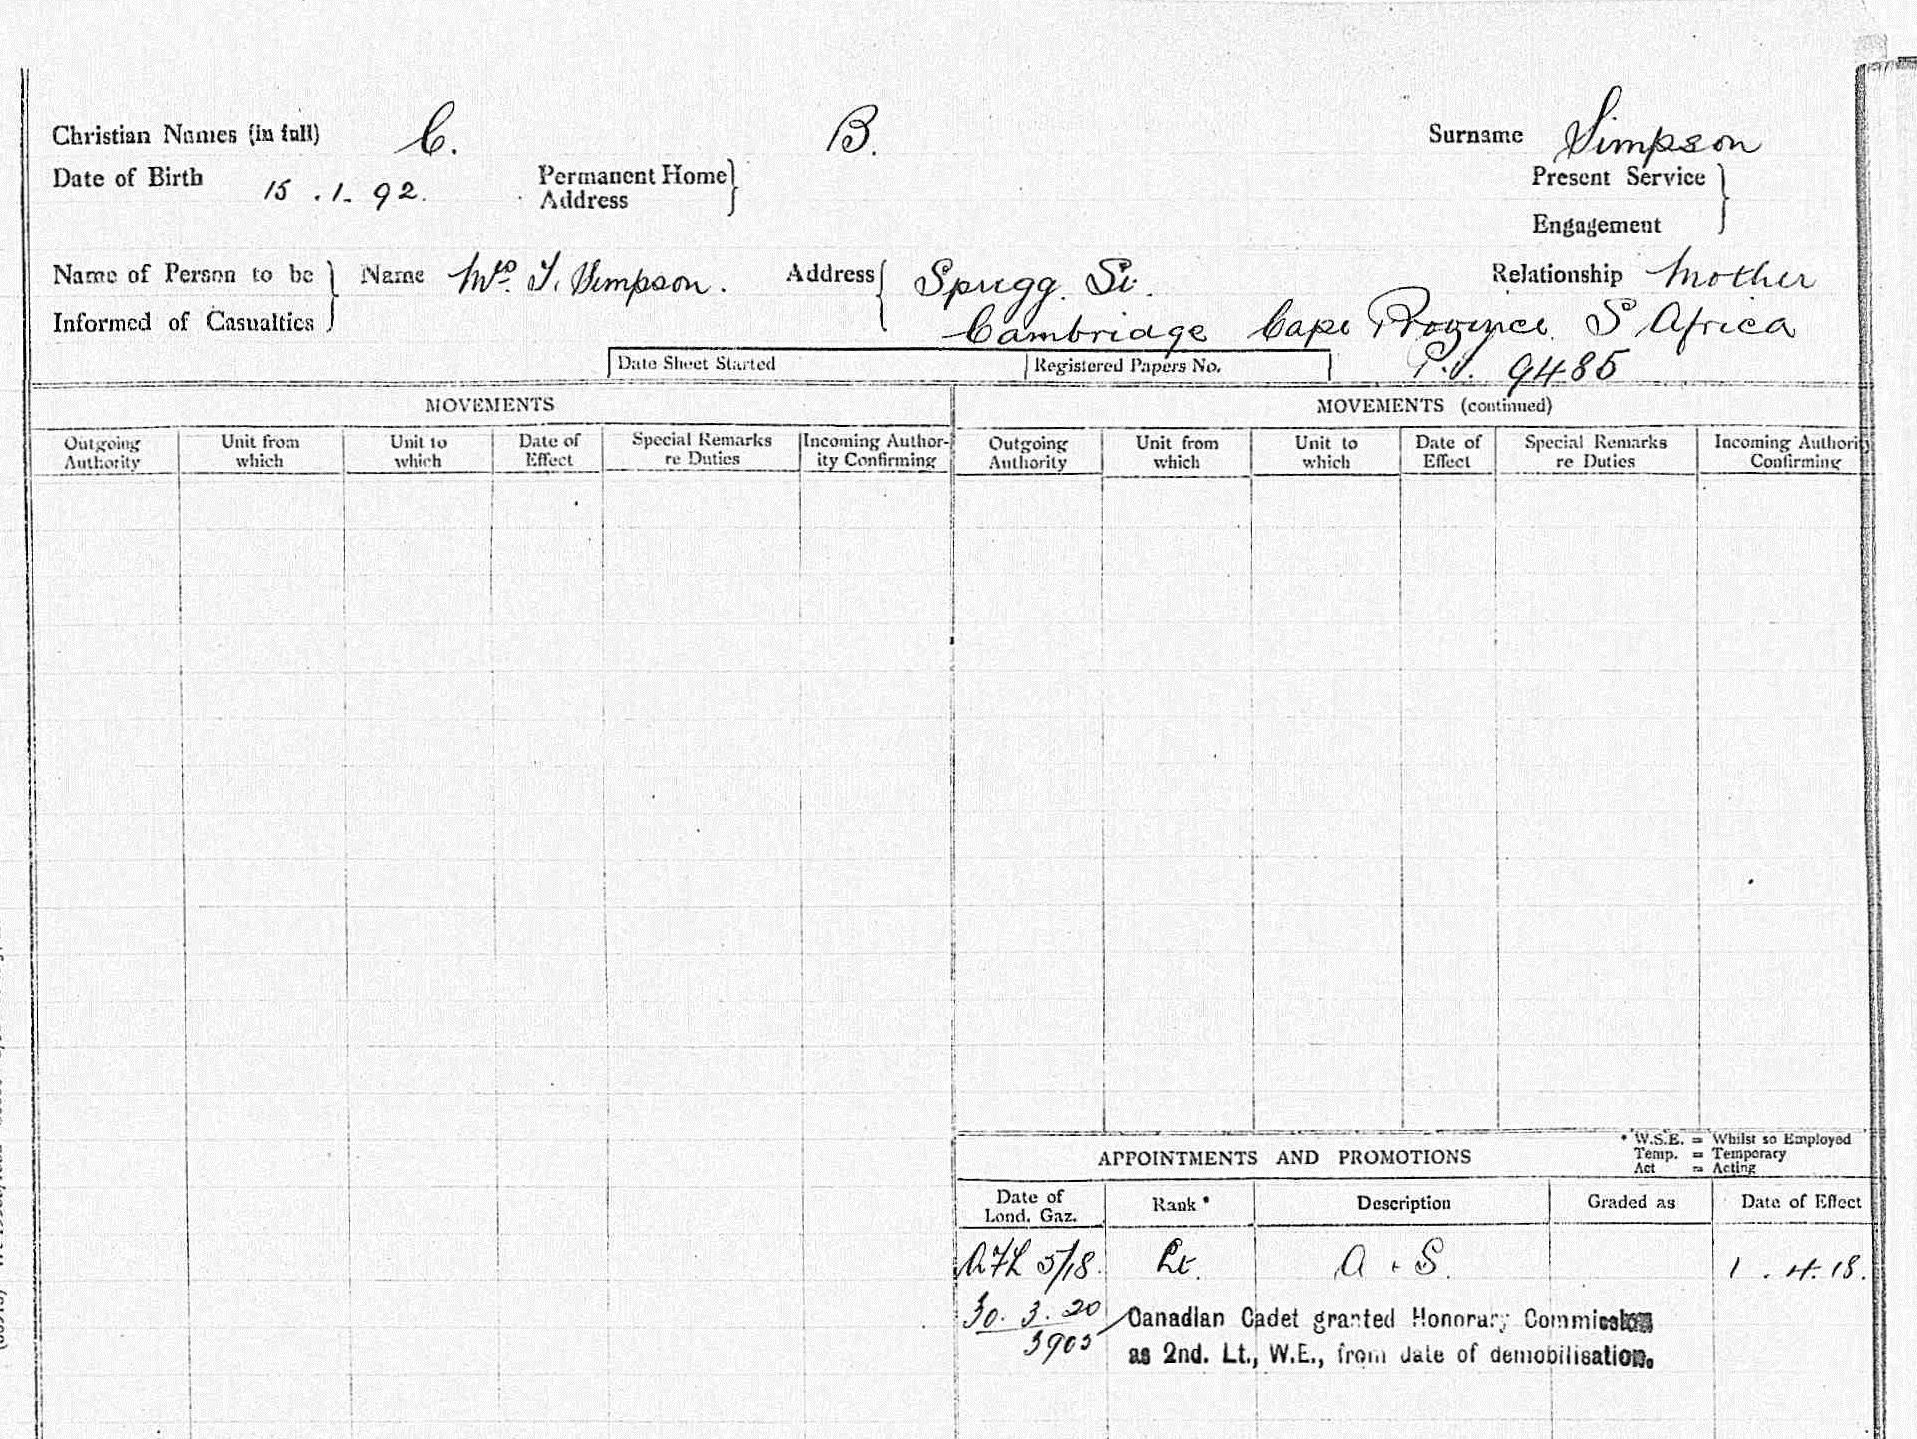 Christian Names (in full) C. B. Surname Simpson
Date of Birth 15.1.92. Permanent Home Address Present Service
Engagement
Name of Person to be Informed of Casualties Name Mrs. T. Simpson. Address Sprigg. St. Relationship Mother
Cambridge Cape Province S. Africa
Date Sheet Started Registered Papers No. P.I. 9485
MOVEMENTS MOVEMENTS (continued)
Outgoing Authority Unit from which Unit to which Date of Effect Special Remarks re Duties Incoming Author-ity Confirming Outgoing Authority Unit from which Unit to which Date of Effect Special Remarks re Duties Incoming Authority Confirming
* W.S.E. = Whilst so Employed
APPOINTMENTS AND PROMOTIONS Temp. = Temporary
Act = Acting
Date of Lond. Gaz. Rank * Description Graded as Date of Effect
5/18. Lt. A. & S. 1.4.18.
30.3.20 Canadian Cadet granted Honorary Commission
3905 as 2nd. Lt., W.E., from date of demobilisation.